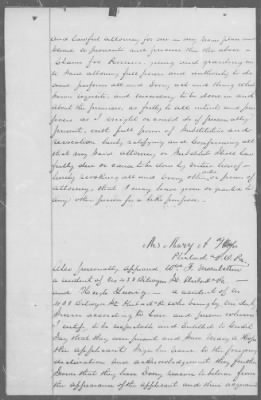 and lawful attorney for me in my name place and
stead to prosecute and process this the above
Claim for Pension giving and granting un
to said attorney full power and authority to do
and perform all and every act and thing what
ever requisite and necessary to be done in and
about the premises as fully to all intents and pur
poses as I might or could do if personally
present, with full power of Substitution and
revocation hereby ratifying and Confirming all
that my said attorney or Substitute shall law
fully do or cause to be done by virtue hereof
hereby revoking all and every other power of
attorney that I may have given or granted to
any other person for a like purpose.
Mrs Mary A
Also personally appeared Wm
a resident of No 438
and a resident of No
400 being by me duly
Sworn according to Law and person whom
I certify to be respectable and Entitled to Credit
Say that they were present and saw Mary A
the applicant sign her name to the foregoing
declaration and acknowledgement they further
Swear that they have Every reason to believe from
the appearance of the applicant and their acquaint